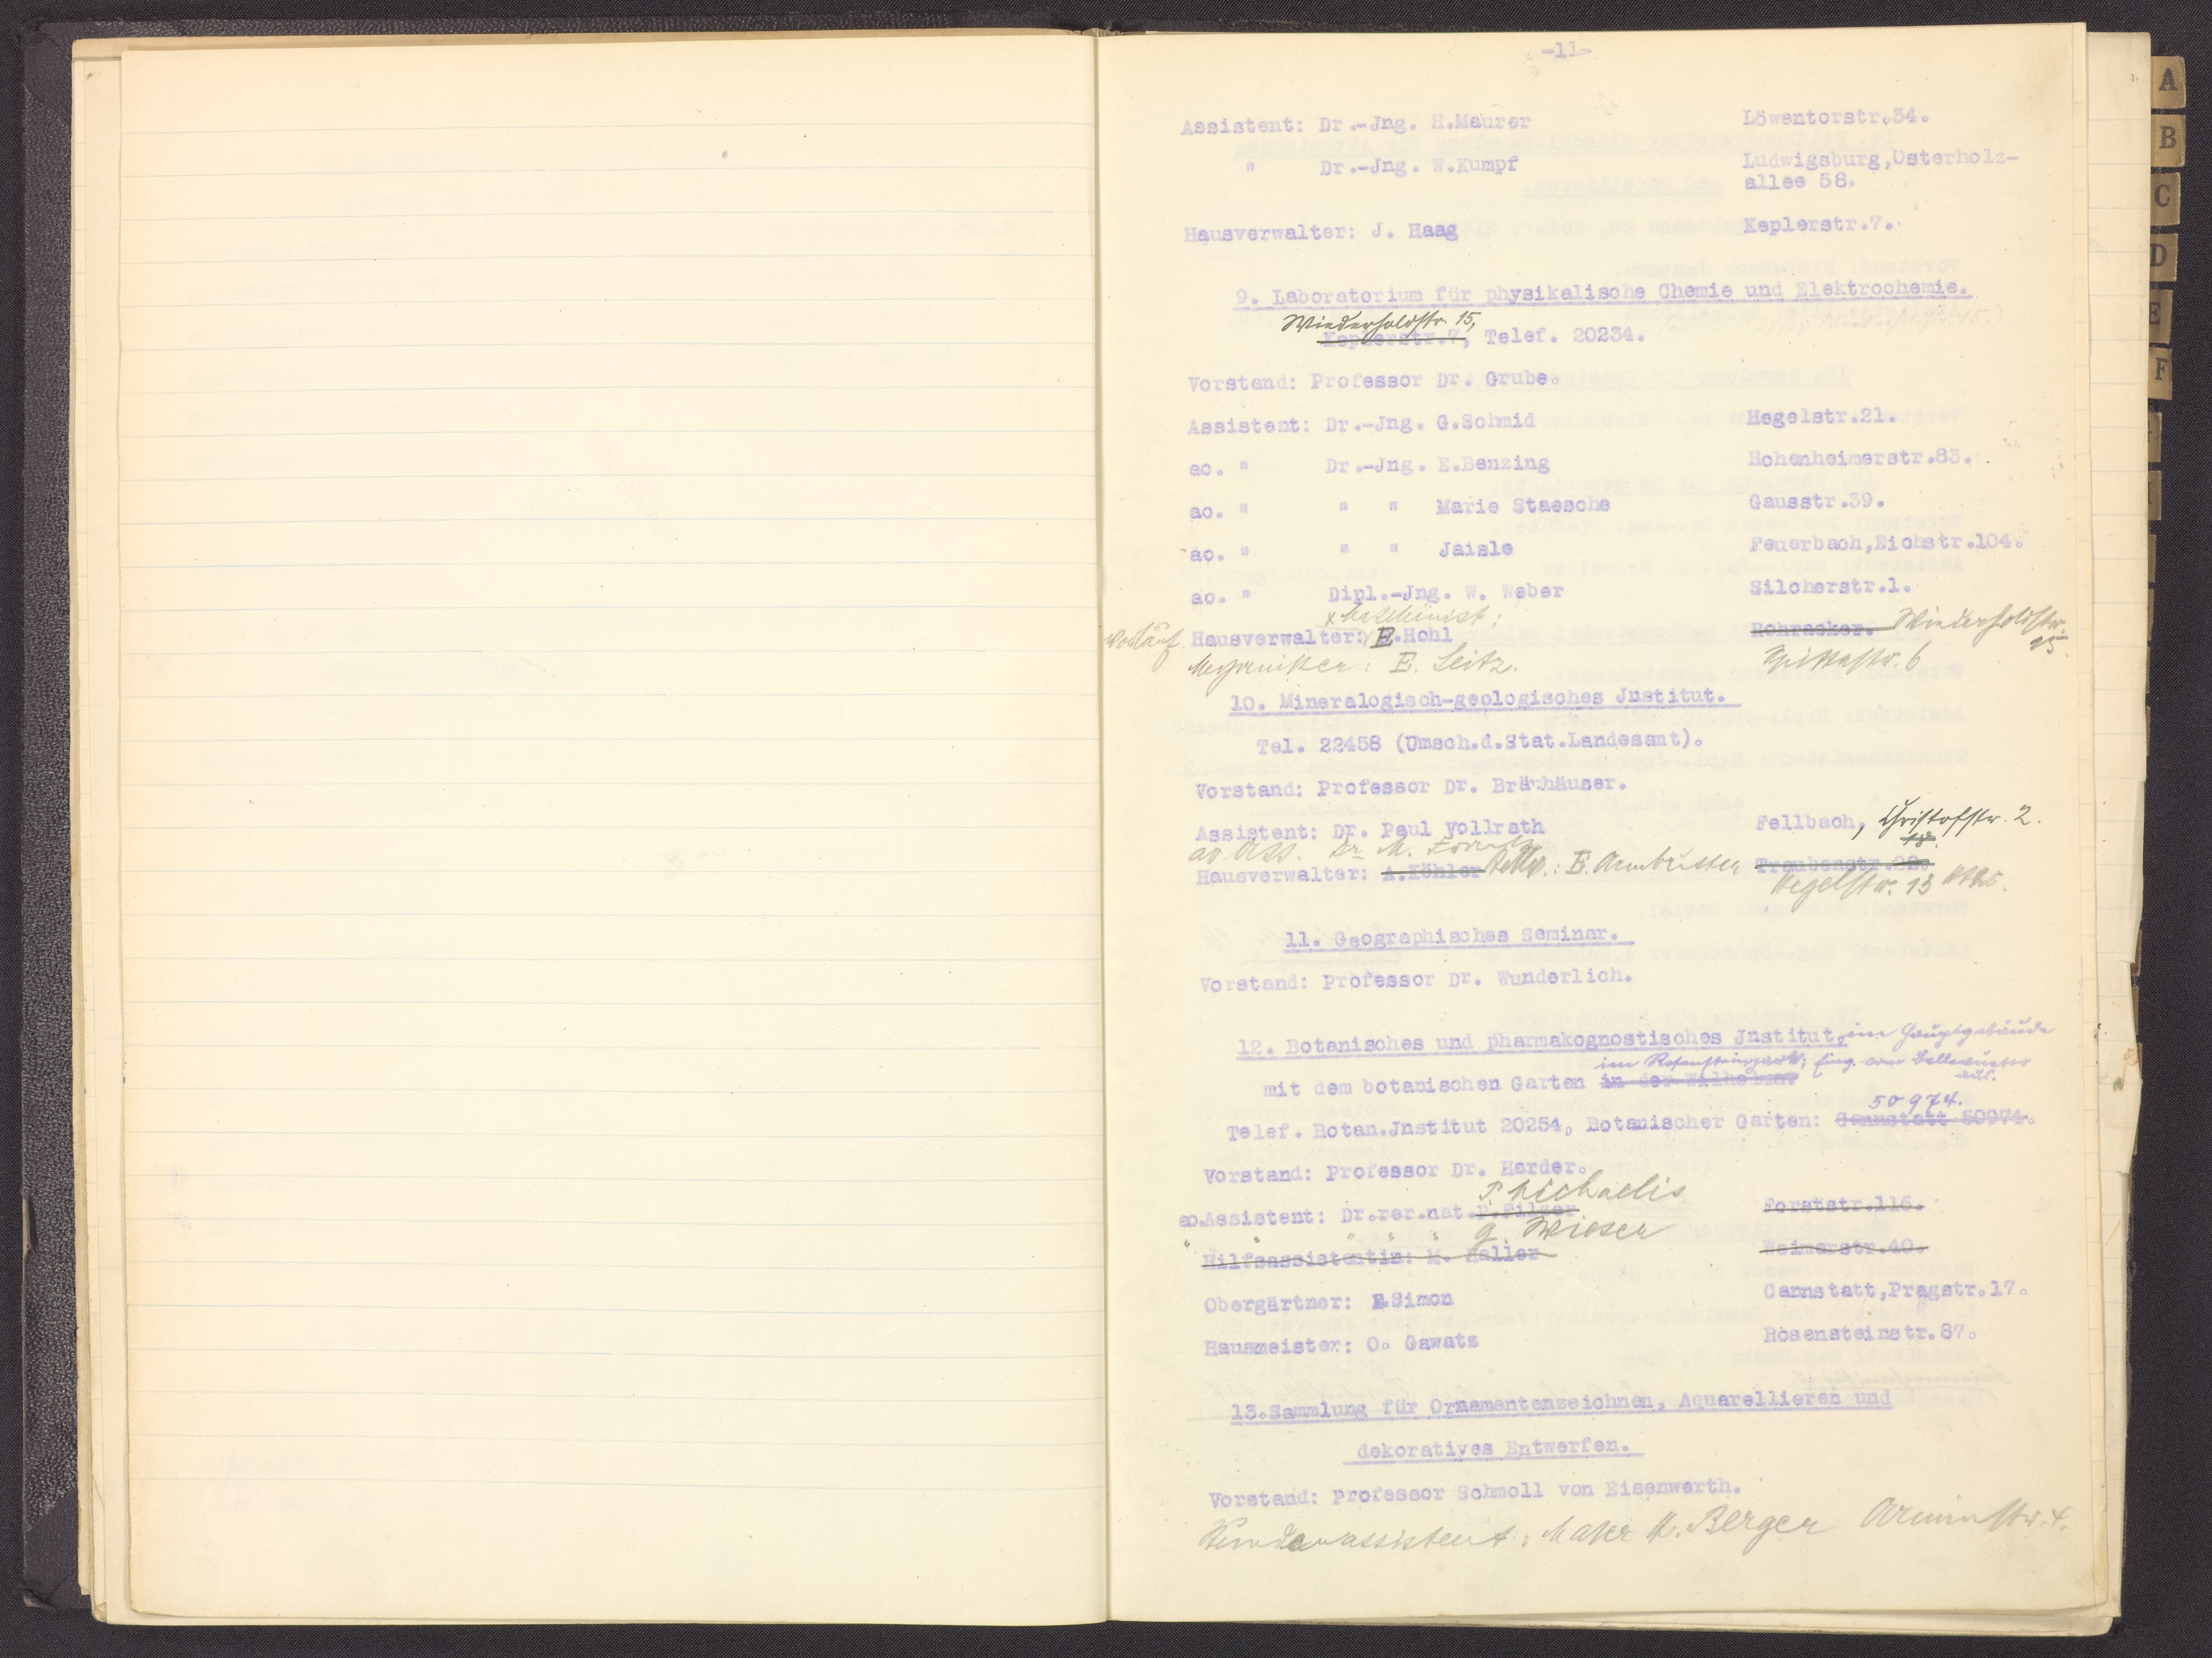 -11-
Assistent: Dr.-Jng. H.Maurer Löwentorstr.34.
" Dr.-Jng. W.Kumpf Ludwigsburg,Osterholz-
allee 58.
Hausverwalter: J. Haag Keplerstr.7.
9. Laboratorium für physikalische Chemie und Elektrochemie.
Wiederholdstr. 15,
Keplerstr.7, Telef. 20234.
Vorstand: Professor Dr. Grube.
Assistent: Dr.-Jng. G.Schmid Hegelstr.21.
ao. " Dr.-Jng. E.Benzing Hohenheimerstr.83.
ao. " " " Marie Staesche Gausstr.39.
ao. " " " Jaisle Feuerbach,Eichstr.104.
ao. " Dipl.-Jng. W. Weber Silcherstr.1.
x Maschinist:
vorläuf. Hausverwalter: E.Hohl Rohracker. Wiederholdstr. 15.
Mechaniker: E. Seitz. 6
10. Mineralogisch-geologisches Jnstitut.
Tel. 22458 (Umsch.d.Stat.Landesamt).
Vorstand: Professor Dr. Bräuhäuser.
Assistent: Dr. Paul Vollrath Fellbach, Christofstr. 2.
ao Ass. Dr. M. 18.
Hausverwalter: A.Köhler : E. Armbruster Traubenstr.22.
Hegelstr. 13
11. Geographisches Seminar.
Vorstand: Professor Dr. Wunderlich.
12. Botanisches und pharmakognostisches Jnstitut, im Hauptgebäude
im Rosensteinpark; Eing. vom Bellevuetor
aus.
mit dem botanischen Garten in der Wilhelma
50974.
Telef. Botan.Jnstitut 20254, Botanischer Garten: Cannstatt 50974.
Vorstand: Professor Dr. Harder.
P. Michaelis
ao.Assistent: Dr.rer.nat.P.Filzer Forststr.116.
" " " " " G. Wieser
Hilfsassistentin: M. Haller Weimarstr.40.
Obergärtner: E.Simon Cannstatt,Pragstr.17.
Hausmeister: O. Gawatz Rosensteinstr.87.
13.Sammlung für Ornamentenzeichnen, Aquarellieren und
dekoratives Entwerfen.
Vorstand: Professor Schmoll von Eisenwerth.
Stundenassistent: Maler H. Berger Arminstr. 4.
A
B
C
D
E
F